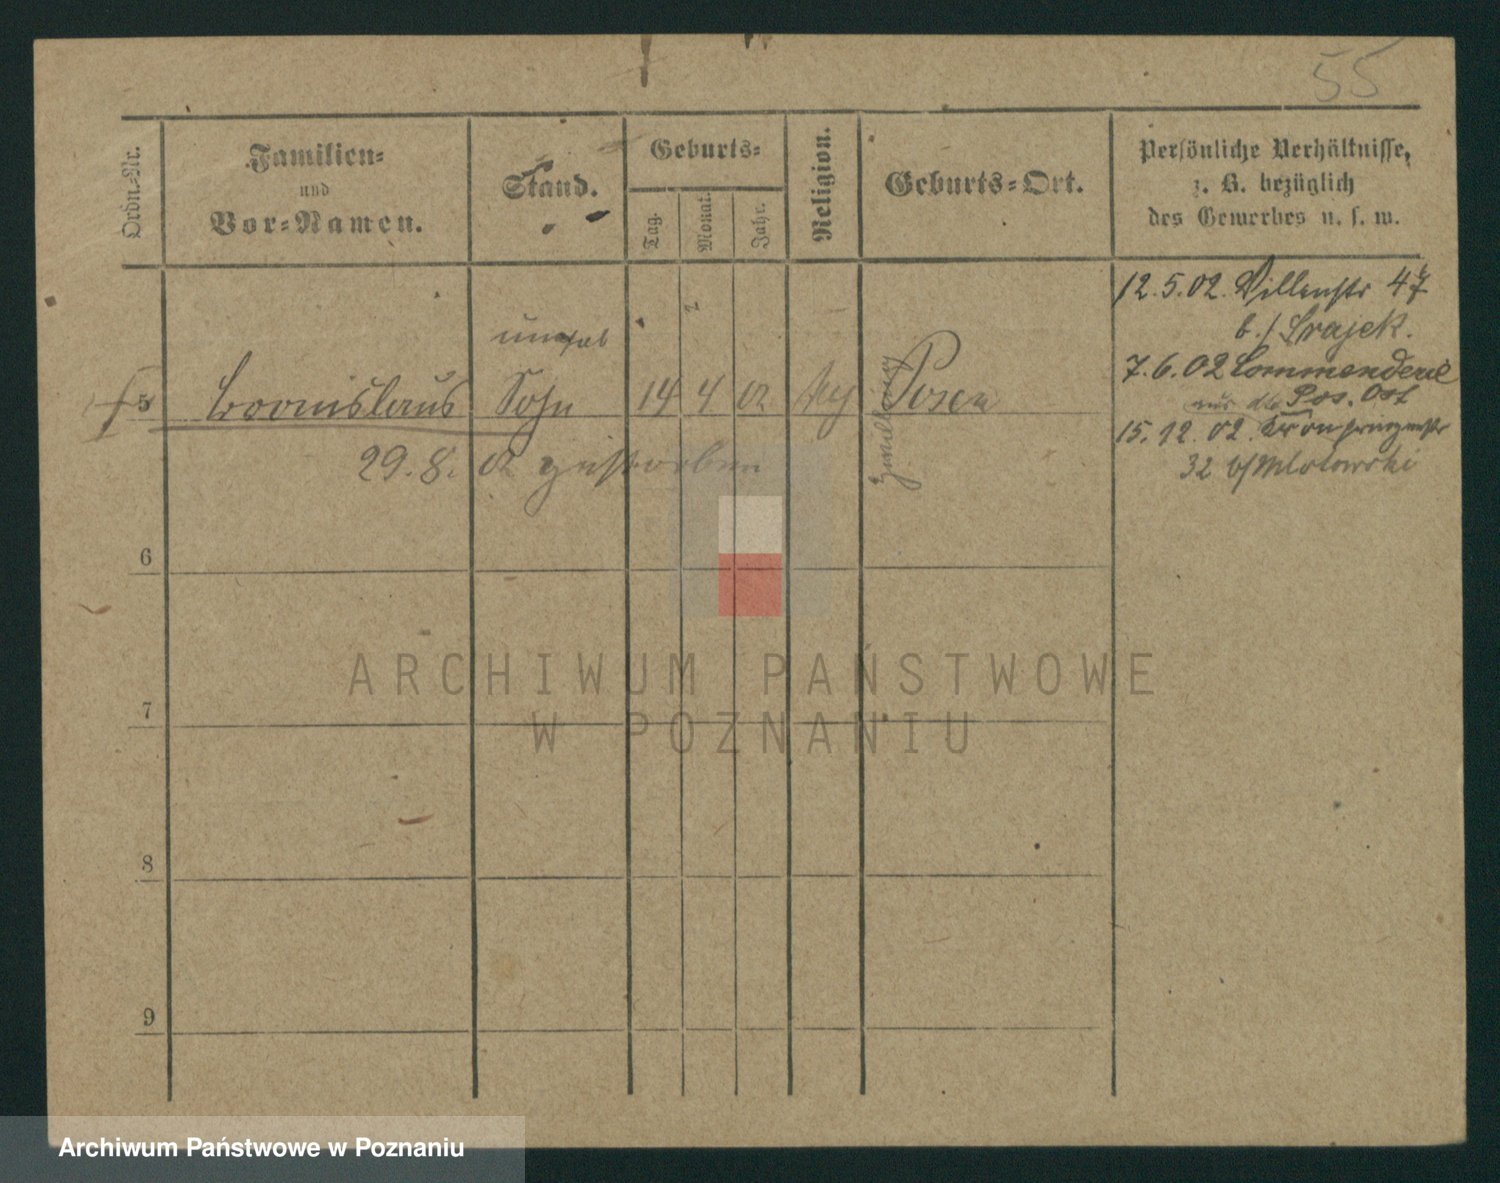 55
Ordn.-Nr.
Familien-
und
Vor-Namen.
Stand.
Geburts-
Tag.
Monat.
Jahr.
Religion.
Geburts-Ort.
Persönliche Verhältnisse,
z. B. bezüglich
des Gewerbes u. s. w.
12.5.02. 47
b./ Srajek.
unehel
7.6.02 Commenderie
5 Bronislaus Sohn 14 4 02 Posen
aus der Pos. Ost
15.12.02. Kronprinzenstr
29.8. 02 gestorben
32 b/ Mlotowski
6
7
8
9
ARCHIWUM PAŃSTWOWE
W POZNANIU
Archiwum Państwowe w Poznaniu